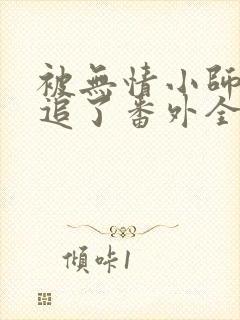 被無情小師
追了番外全
傾咔1